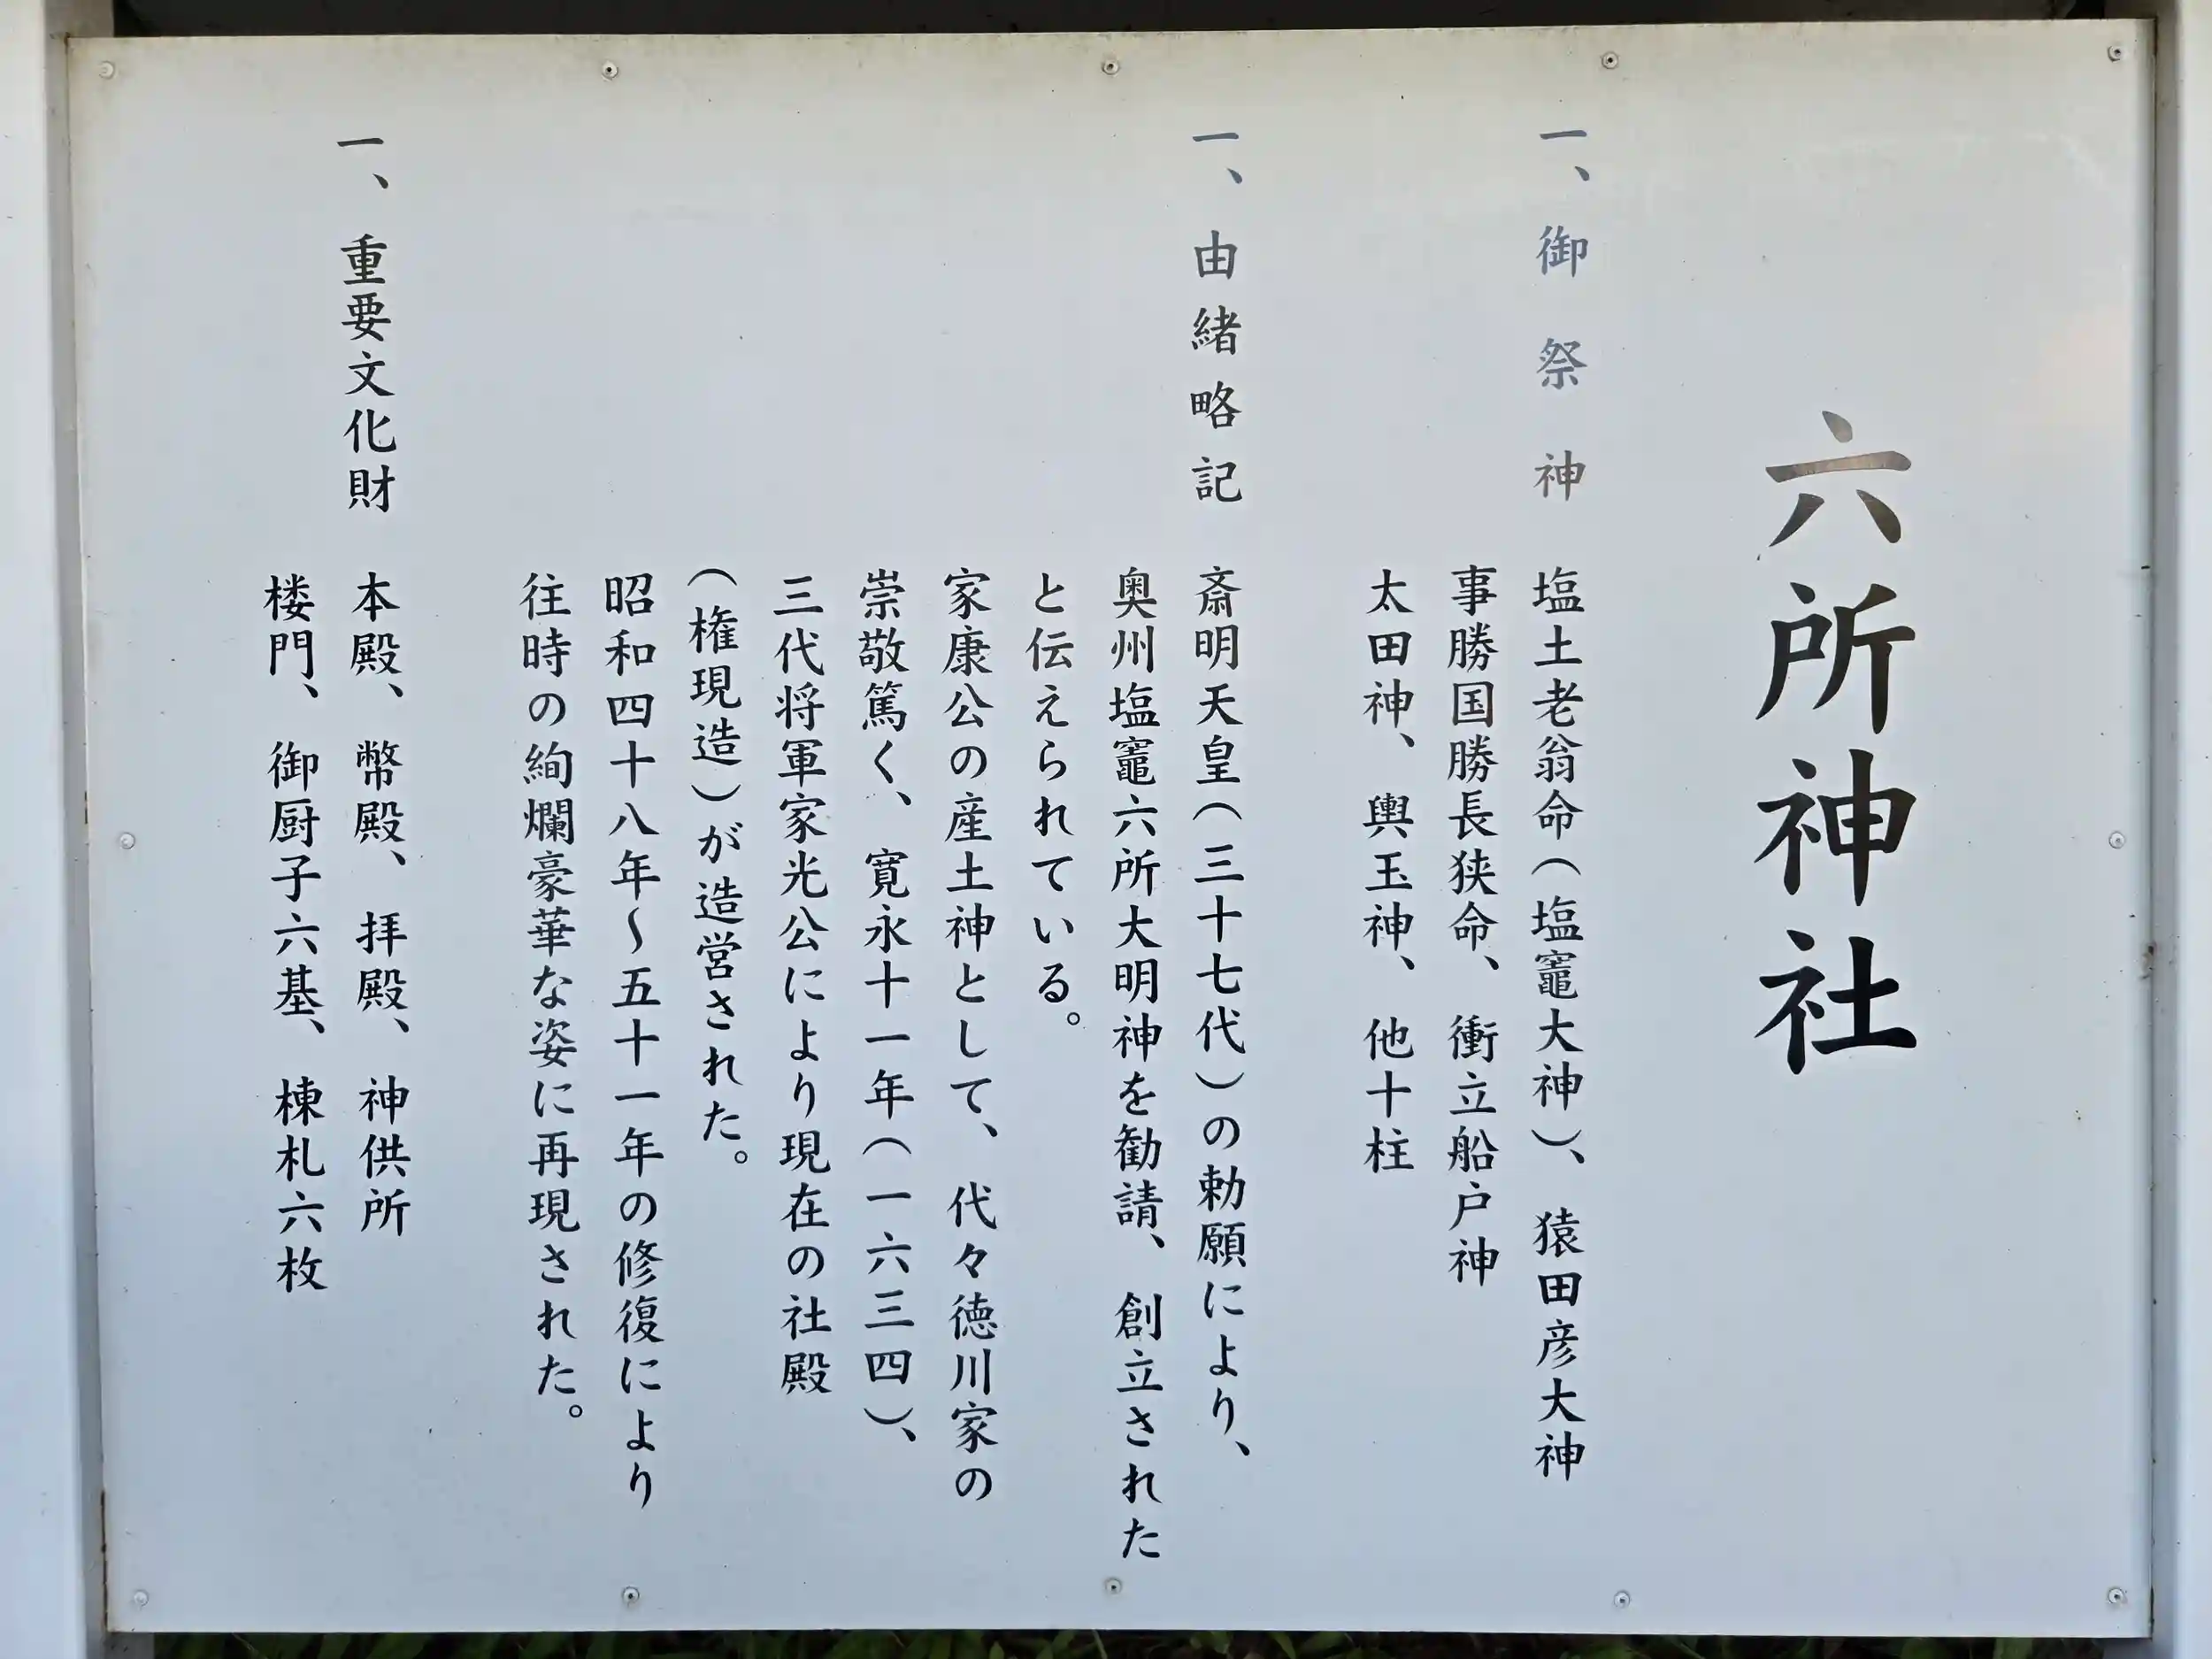 六所神社
一、御祭神 塩土老翁命（塩竈大神）、猿田彦大神
事勝国勝長狭命、衝立船戸神
太田神、興玉神、他十柱
一、由緒略記 斎明天皇（三十七代）の勅願により、
奥州塩竈六所大明神を勧請、創立された
と伝えられている。
家康公の産土神として、代々徳川家の
崇敬篤く、寛永十一年（一六三四）、
三代将軍家光公により現在の社殿
（権現造）が造営された。
昭和四十八年～五十一年の修復により
往時の絢爛豪華な姿に再現された。
一、重要文化財 本殿、幣殿、拝殿、神供所
楼門、御厨子六基、棟札六枚